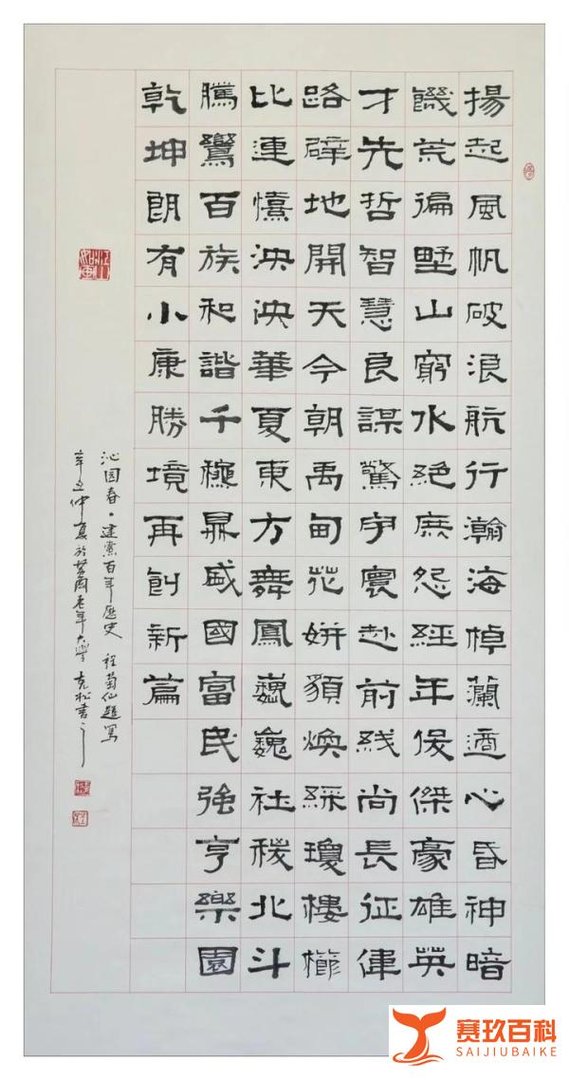 揚起風帆破浪航行瀚海悼瀾遒心昏神暗
饑荒徧野山窮水絕庶怨經年俊傑豪雄英
才先哲智慧良謀驚宇寰赴前线尚長征偉
路辟地開天今朝禹甸花妍貌煥綵瓊樓櫛
比連泱泱華夏東方舞鳳巍巍社稷北斗
騰鸞百族和諧千穐鼎盛國富民強亨樂園
乾坤朗有小康勝境再創新篇
沁园春·建黨百年歷史 程菊仙題寫
辛丑仲夏於老年大學 克松書
江山如画
赛玖百科
SAIJIUBAIKE